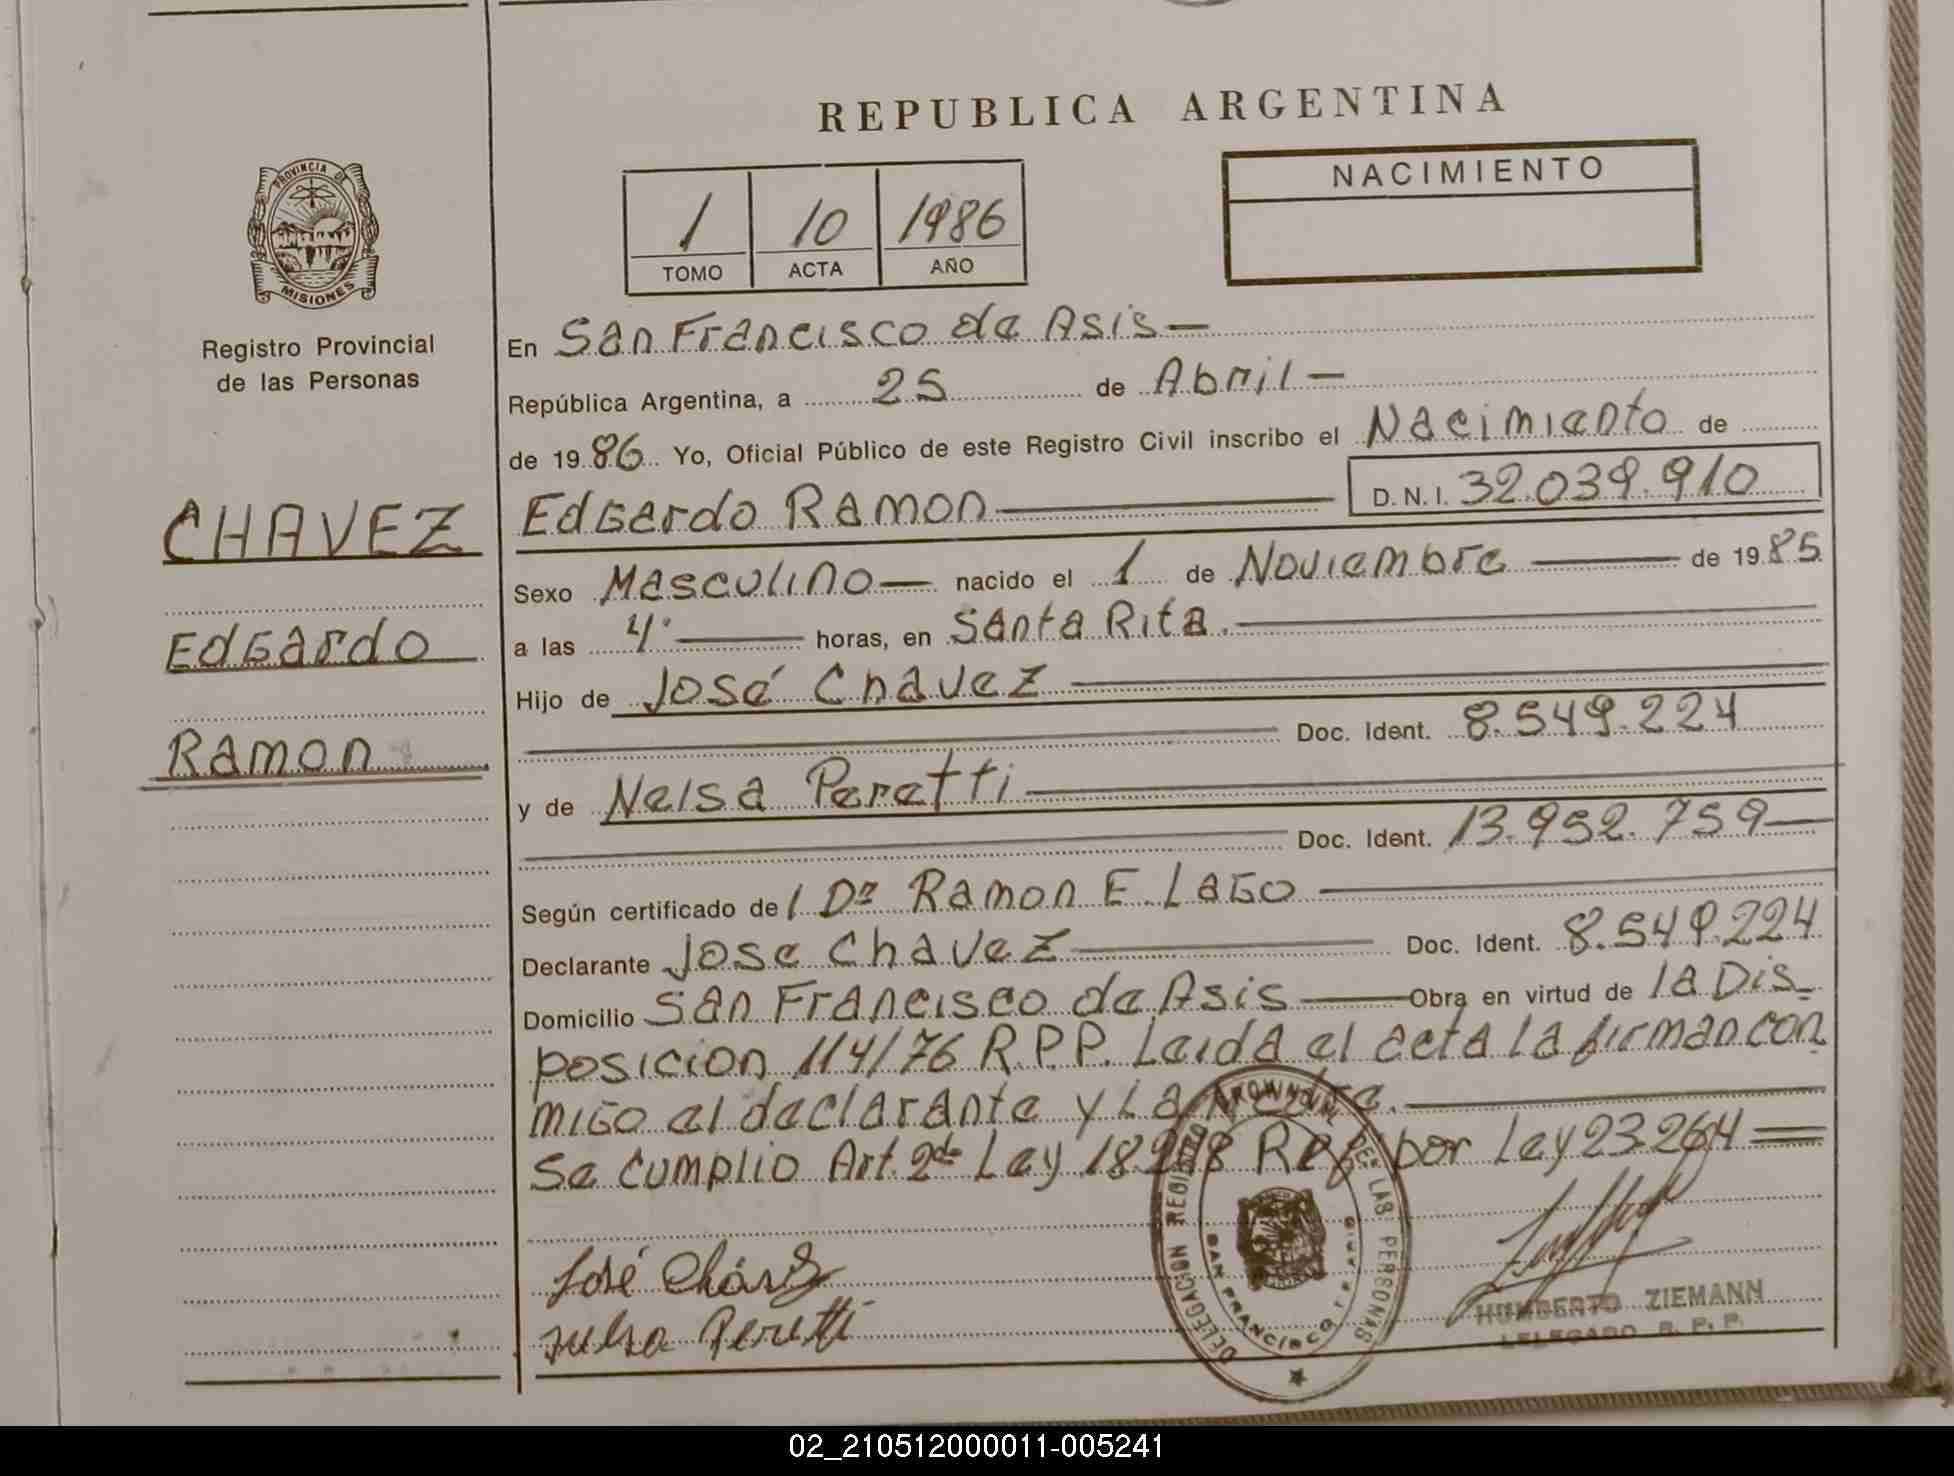 REPUBLICA ARGENTINA
PROVINCIA DE
MISIONES
Registro Provincial
de las Personas
CHAVEZ
Edgardo
Ramon
1 10 1986
TOMO ACTA AÑO
NACIMIENTO
En San Francisco de Asis —
República Argentina, a 25 de Abril —
de 1986 Yo, Oficial Público de este Registro Civil inscribo el Nacimiento de
Edgardo Ramon — D.N.I. 32.039.910
Sexo Masculino — nacido el 1 de Noviembre — de 1985
a las 4· — horas, en Santa Rita. —
Hijo de José Chavez —
Doc. Ident. 8.549.224
y de Nelsa Peretti —
Doc. Ident. 13.952.759 —
Según certificado de l Dr Ramon E. Lago —
Declarante Jose Chavez — Doc. Ident. 8.549.224
Domicilio San Francisco de Asis — Obra en virtud de la Dis-
posicion 114/76 R.P.P. Leida el acta la firman con
migo el declarante y la Madre. —
Se cumplio Art. 2do Ley 18.248 Ref por Ley 23.264 =
José Chávez
Nelsa Peretti
DELEGACION REGISTRO PROVINCIAL DE LAS PERSONAS
SAN FRANCISCO
HUMBERTO ZIEMANN
DELEGADO R. P. P.
02_210512000011-005241